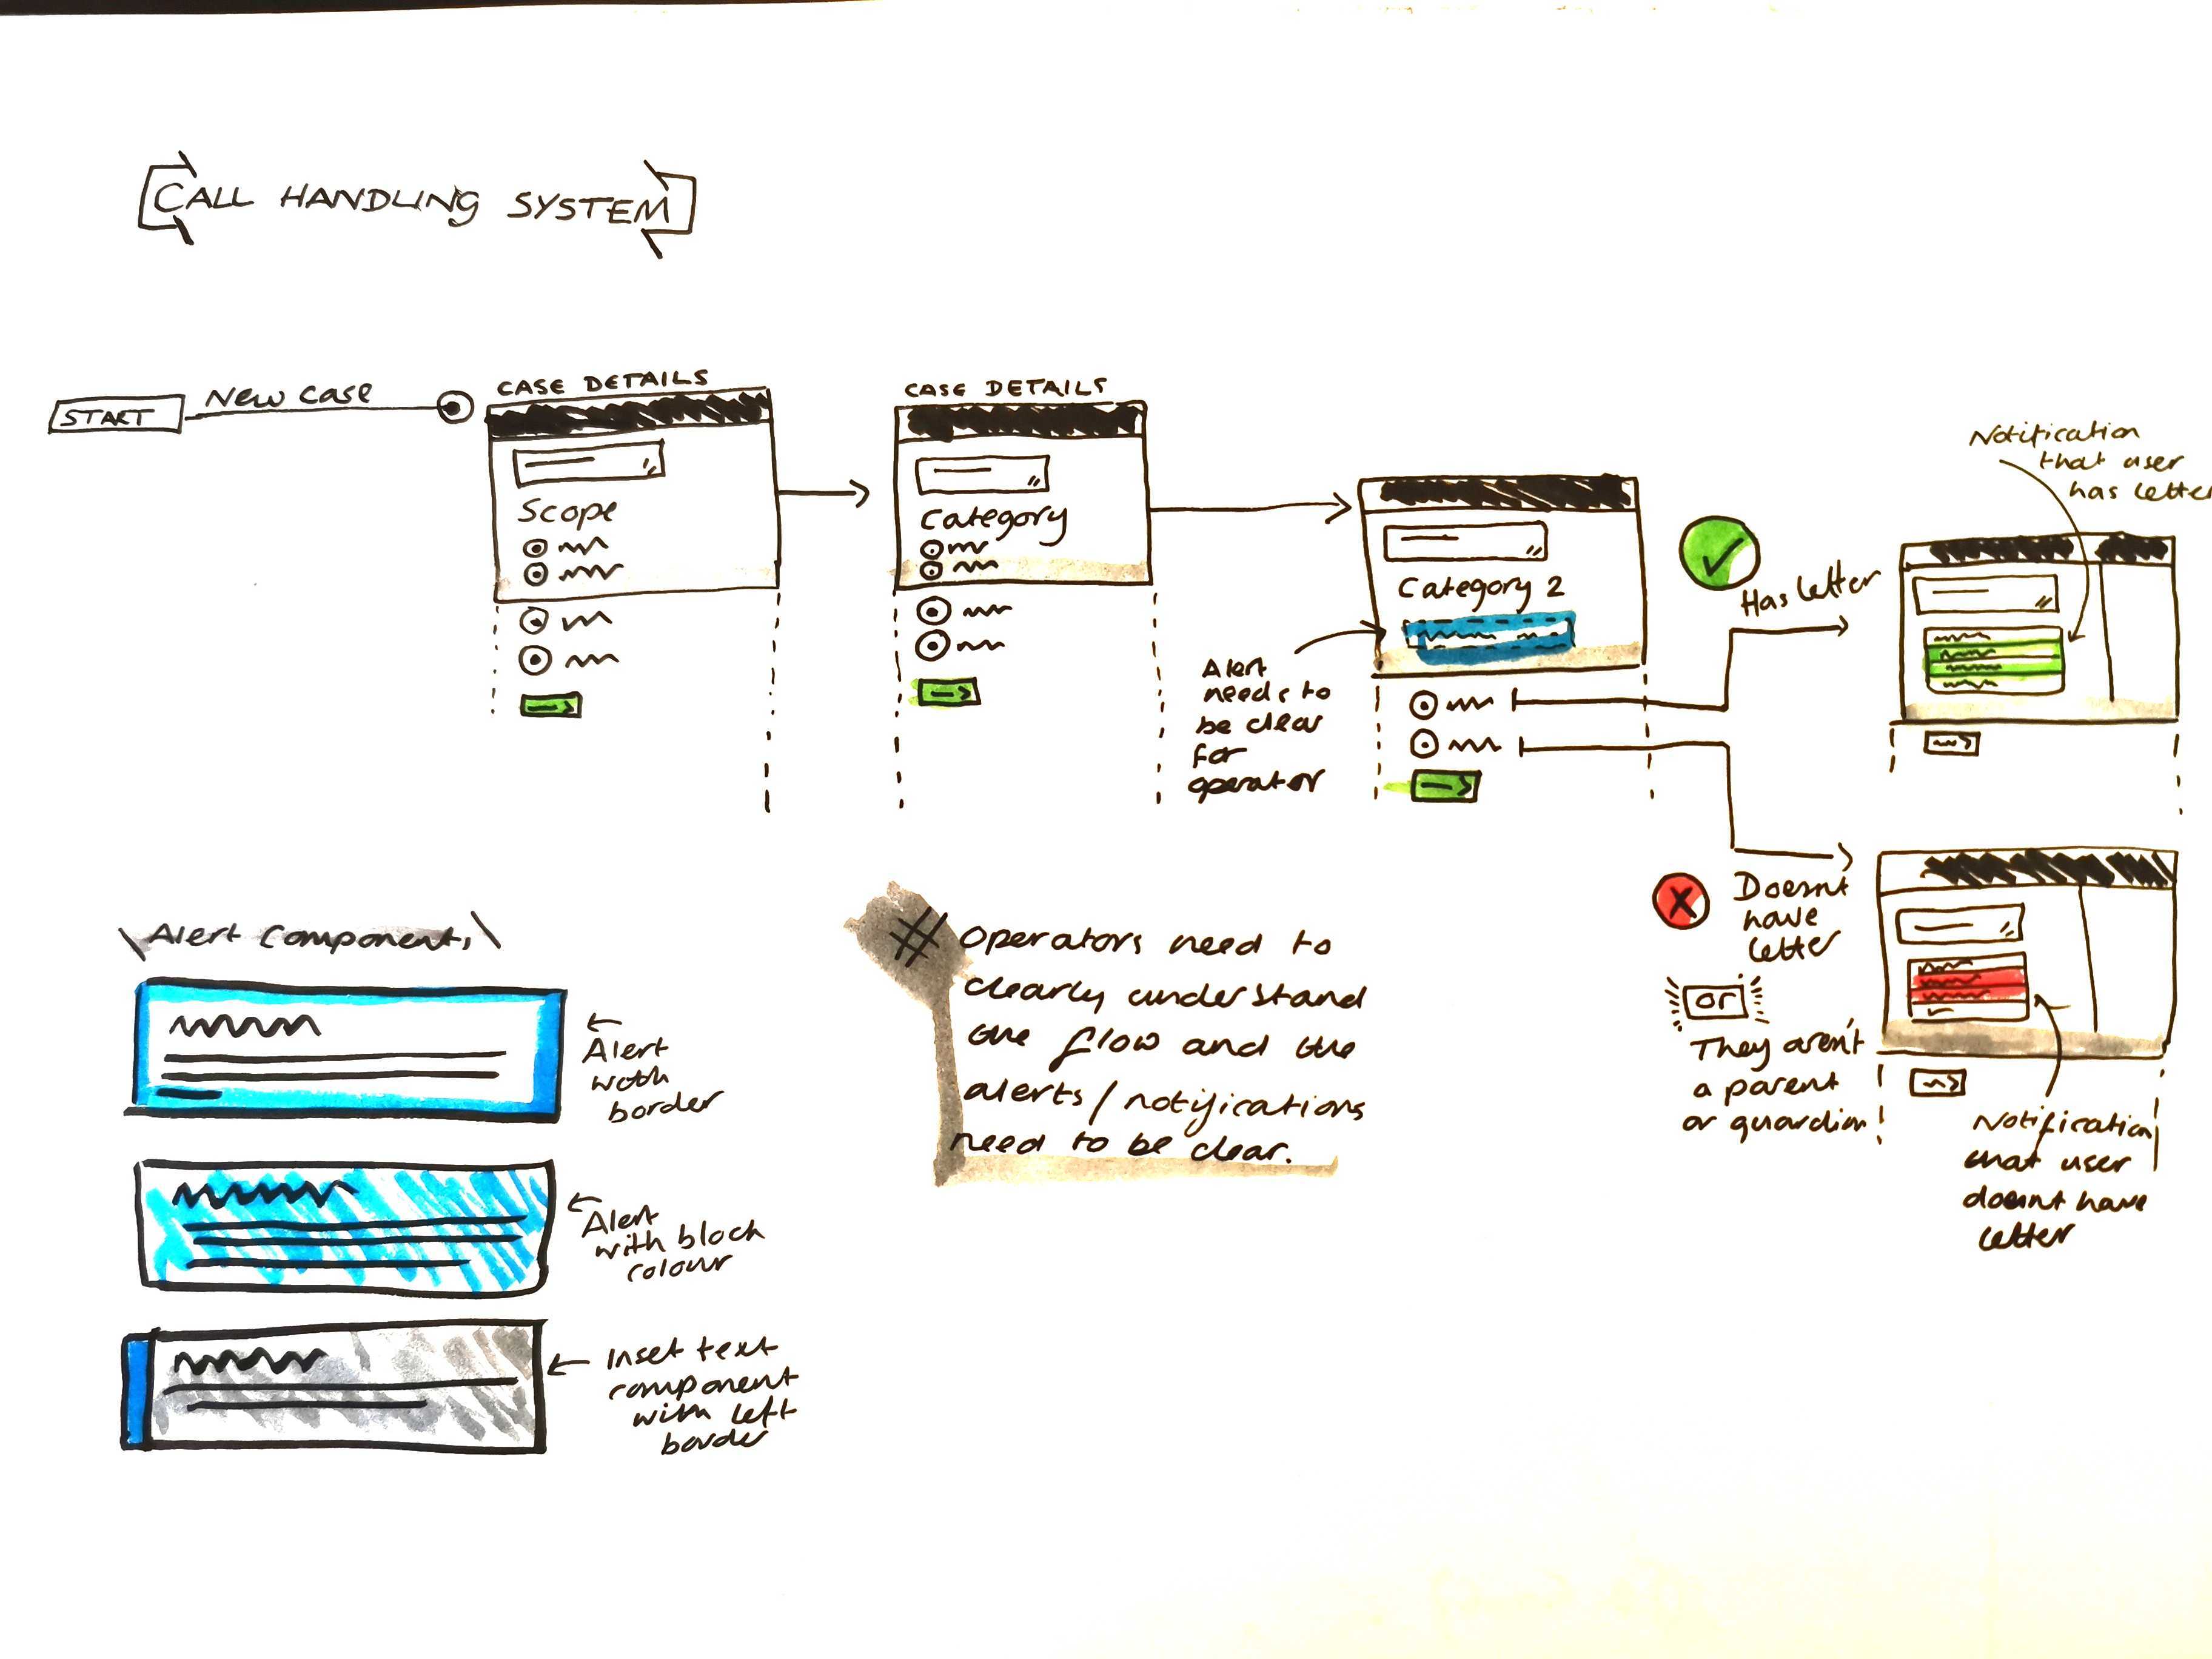 CALL HANDLING SYSTEM
START
New case
CASE DETAILS
Scope
CASE DETAILS
Category
Category 2
Alert
needs to
be clear
for
operator
Has letter
Notification
that user
has letter
Doesnt
have
letter
or
They aren't
a parent
or guardian!
Notification
that user
doesnt have
letter
Alert Components
Alert
with
border
Alert
with block
colour
Inset text
component
with left
border
# Operators need to
clearly understand
the flow and the
alerts/notifications
need to be clear.